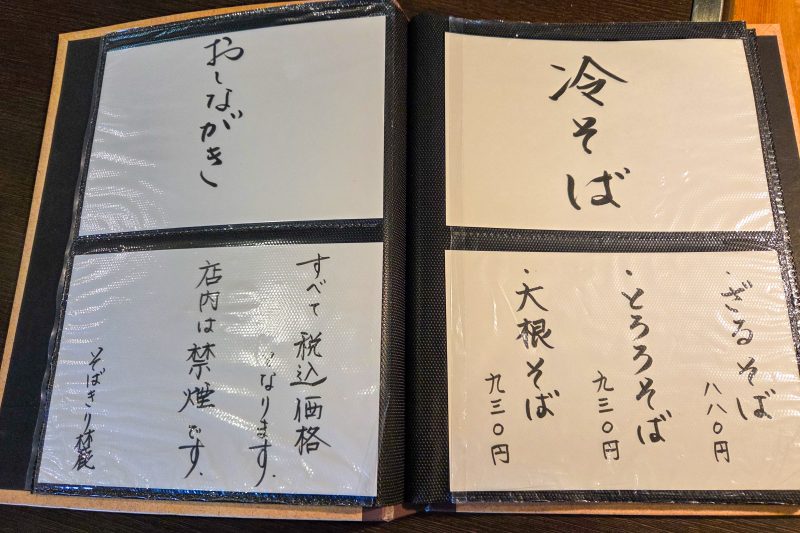 おしながき
すべて税込価格
なります。
店内は禁煙です。
そばきり
冷そば
・ざるそば
八八〇円
・とろろそば
九三〇円
・大根そば
九三〇円